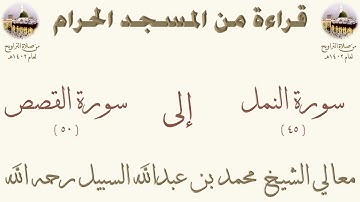 قراءة من المسجد الحرام
من صلاة التراويح
لعام ١٤٠٢هـ
من صلاة التراويح
لعام ١٤٠٢هـ
سورة النمل إلى سورة القصص
( ٤٥ ) ( ٥٠ )
معالي الشيخ محمد بن عبدالله السبيل رحمه الله